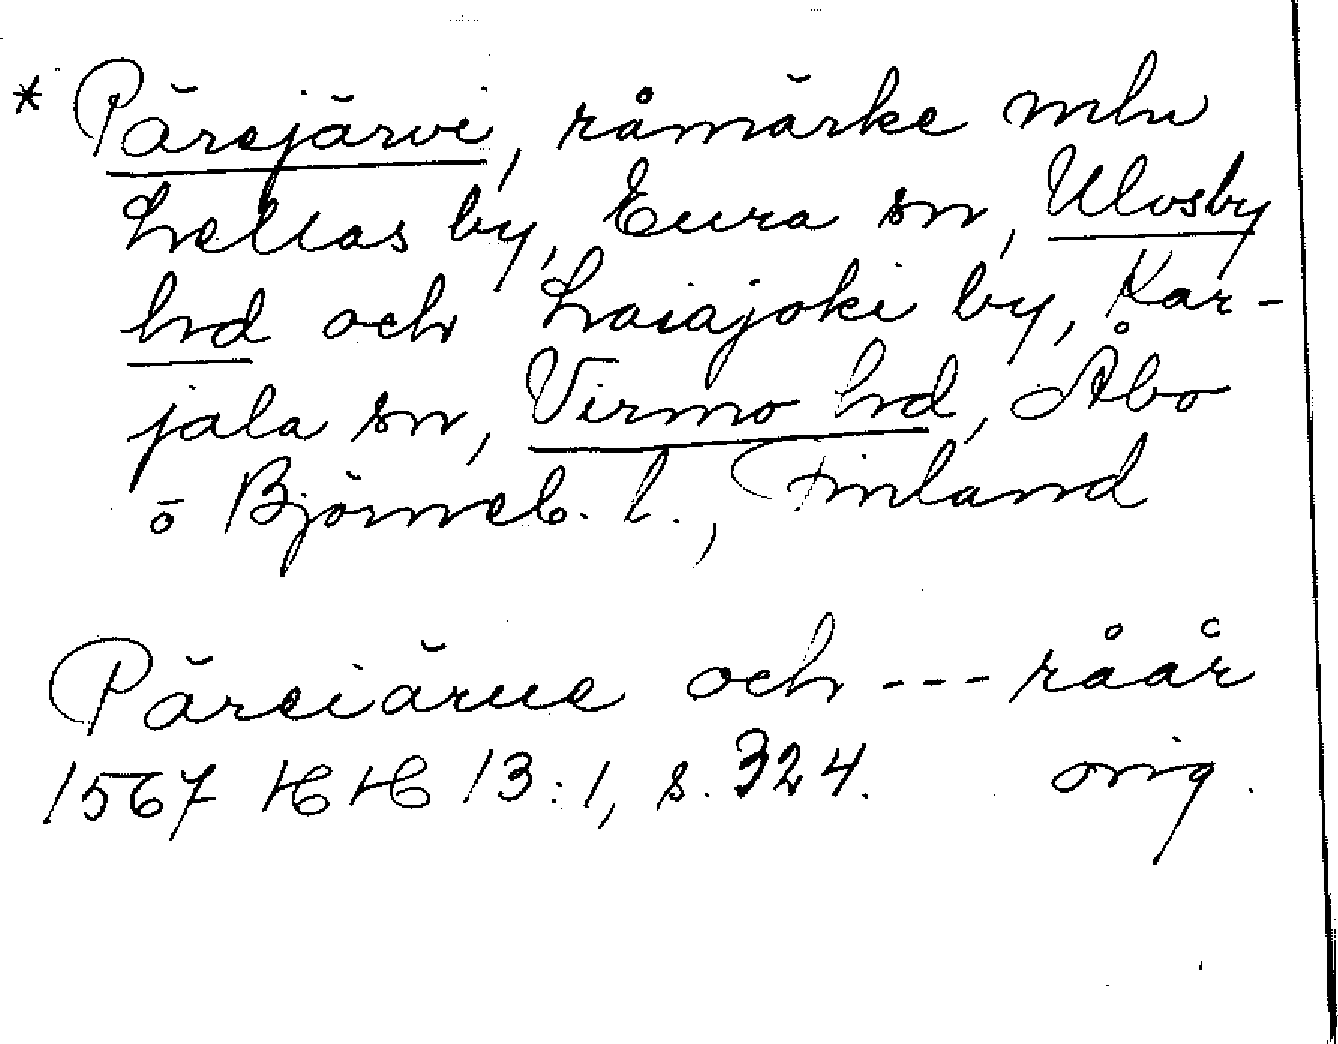 * Pärejärvi, råmärke mln
Lellas by, Eura sn, Ulvsby
hd och Laiajoki by, Kar-
jala sn, Virmo hd, Åbo
o Björneb. l., Finland
Päreiärue och --- råår
1567 HH 13:1, s. 324. orig.